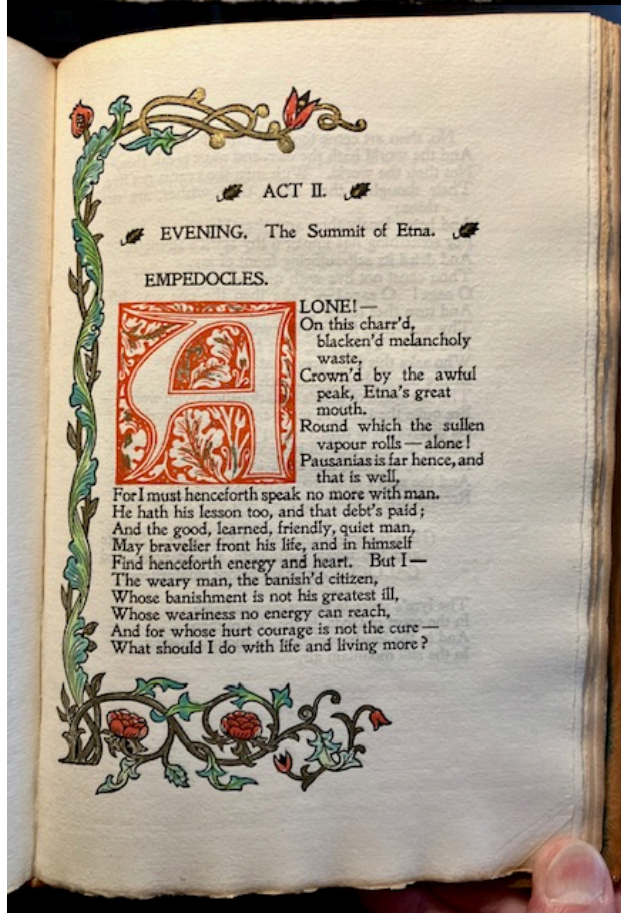 ACT II.
EVENING. The Summit of Etna.
EMPEDOCLES.
ALONE!—
On this charr'd,
blacken'd melancholy
waste,
Crown'd by the awful
peak, Etna's great
mouth.
Round which the sullen
vapour rolls — alone!
Pausanias is far hence, and
that is well,
For I must henceforth speak no more with man.
He hath his lesson too, and that debt's paid;
And the good, learned, friendly, quiet man,
May bravelier front his life, and in himself
Find henceforth energy and heart. But I—
The weary man, the banish'd citizen,
Whose banishment is not his greatest ill,
Whose weariness no energy can reach,
And for whose hurt courage is not the cure—
What should I do with life and living more?